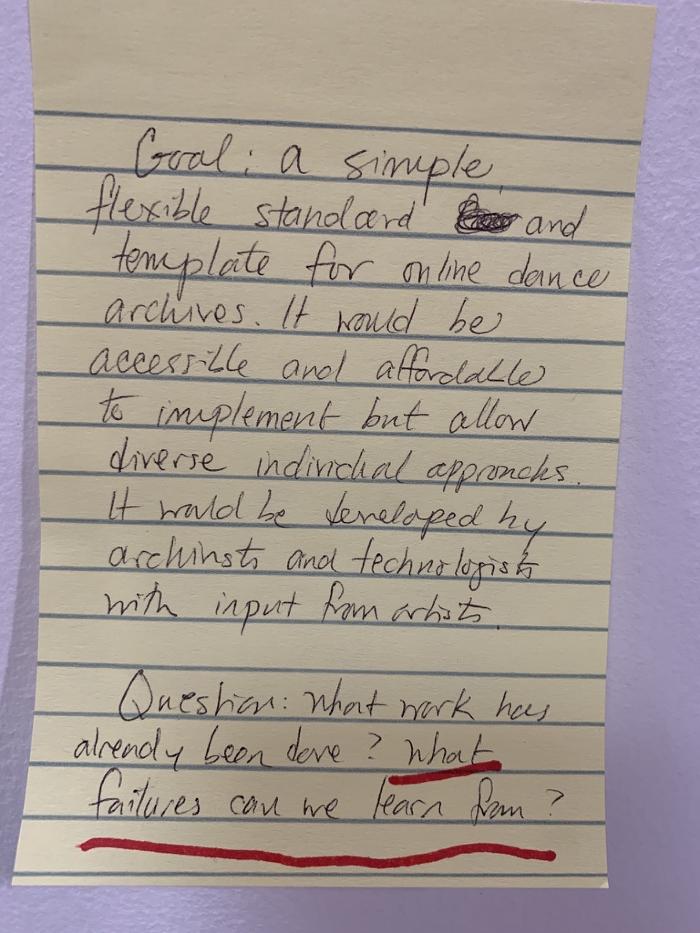 Goal: a simple,
flexible standard and
template for online dance
archives. It would be
accessible and affordable
to implement but allow
diverse individual approachs.
It would be developed by
archivists and technologists
with input from artists.
Question: what work has
already been done? What
failures can we learn from?